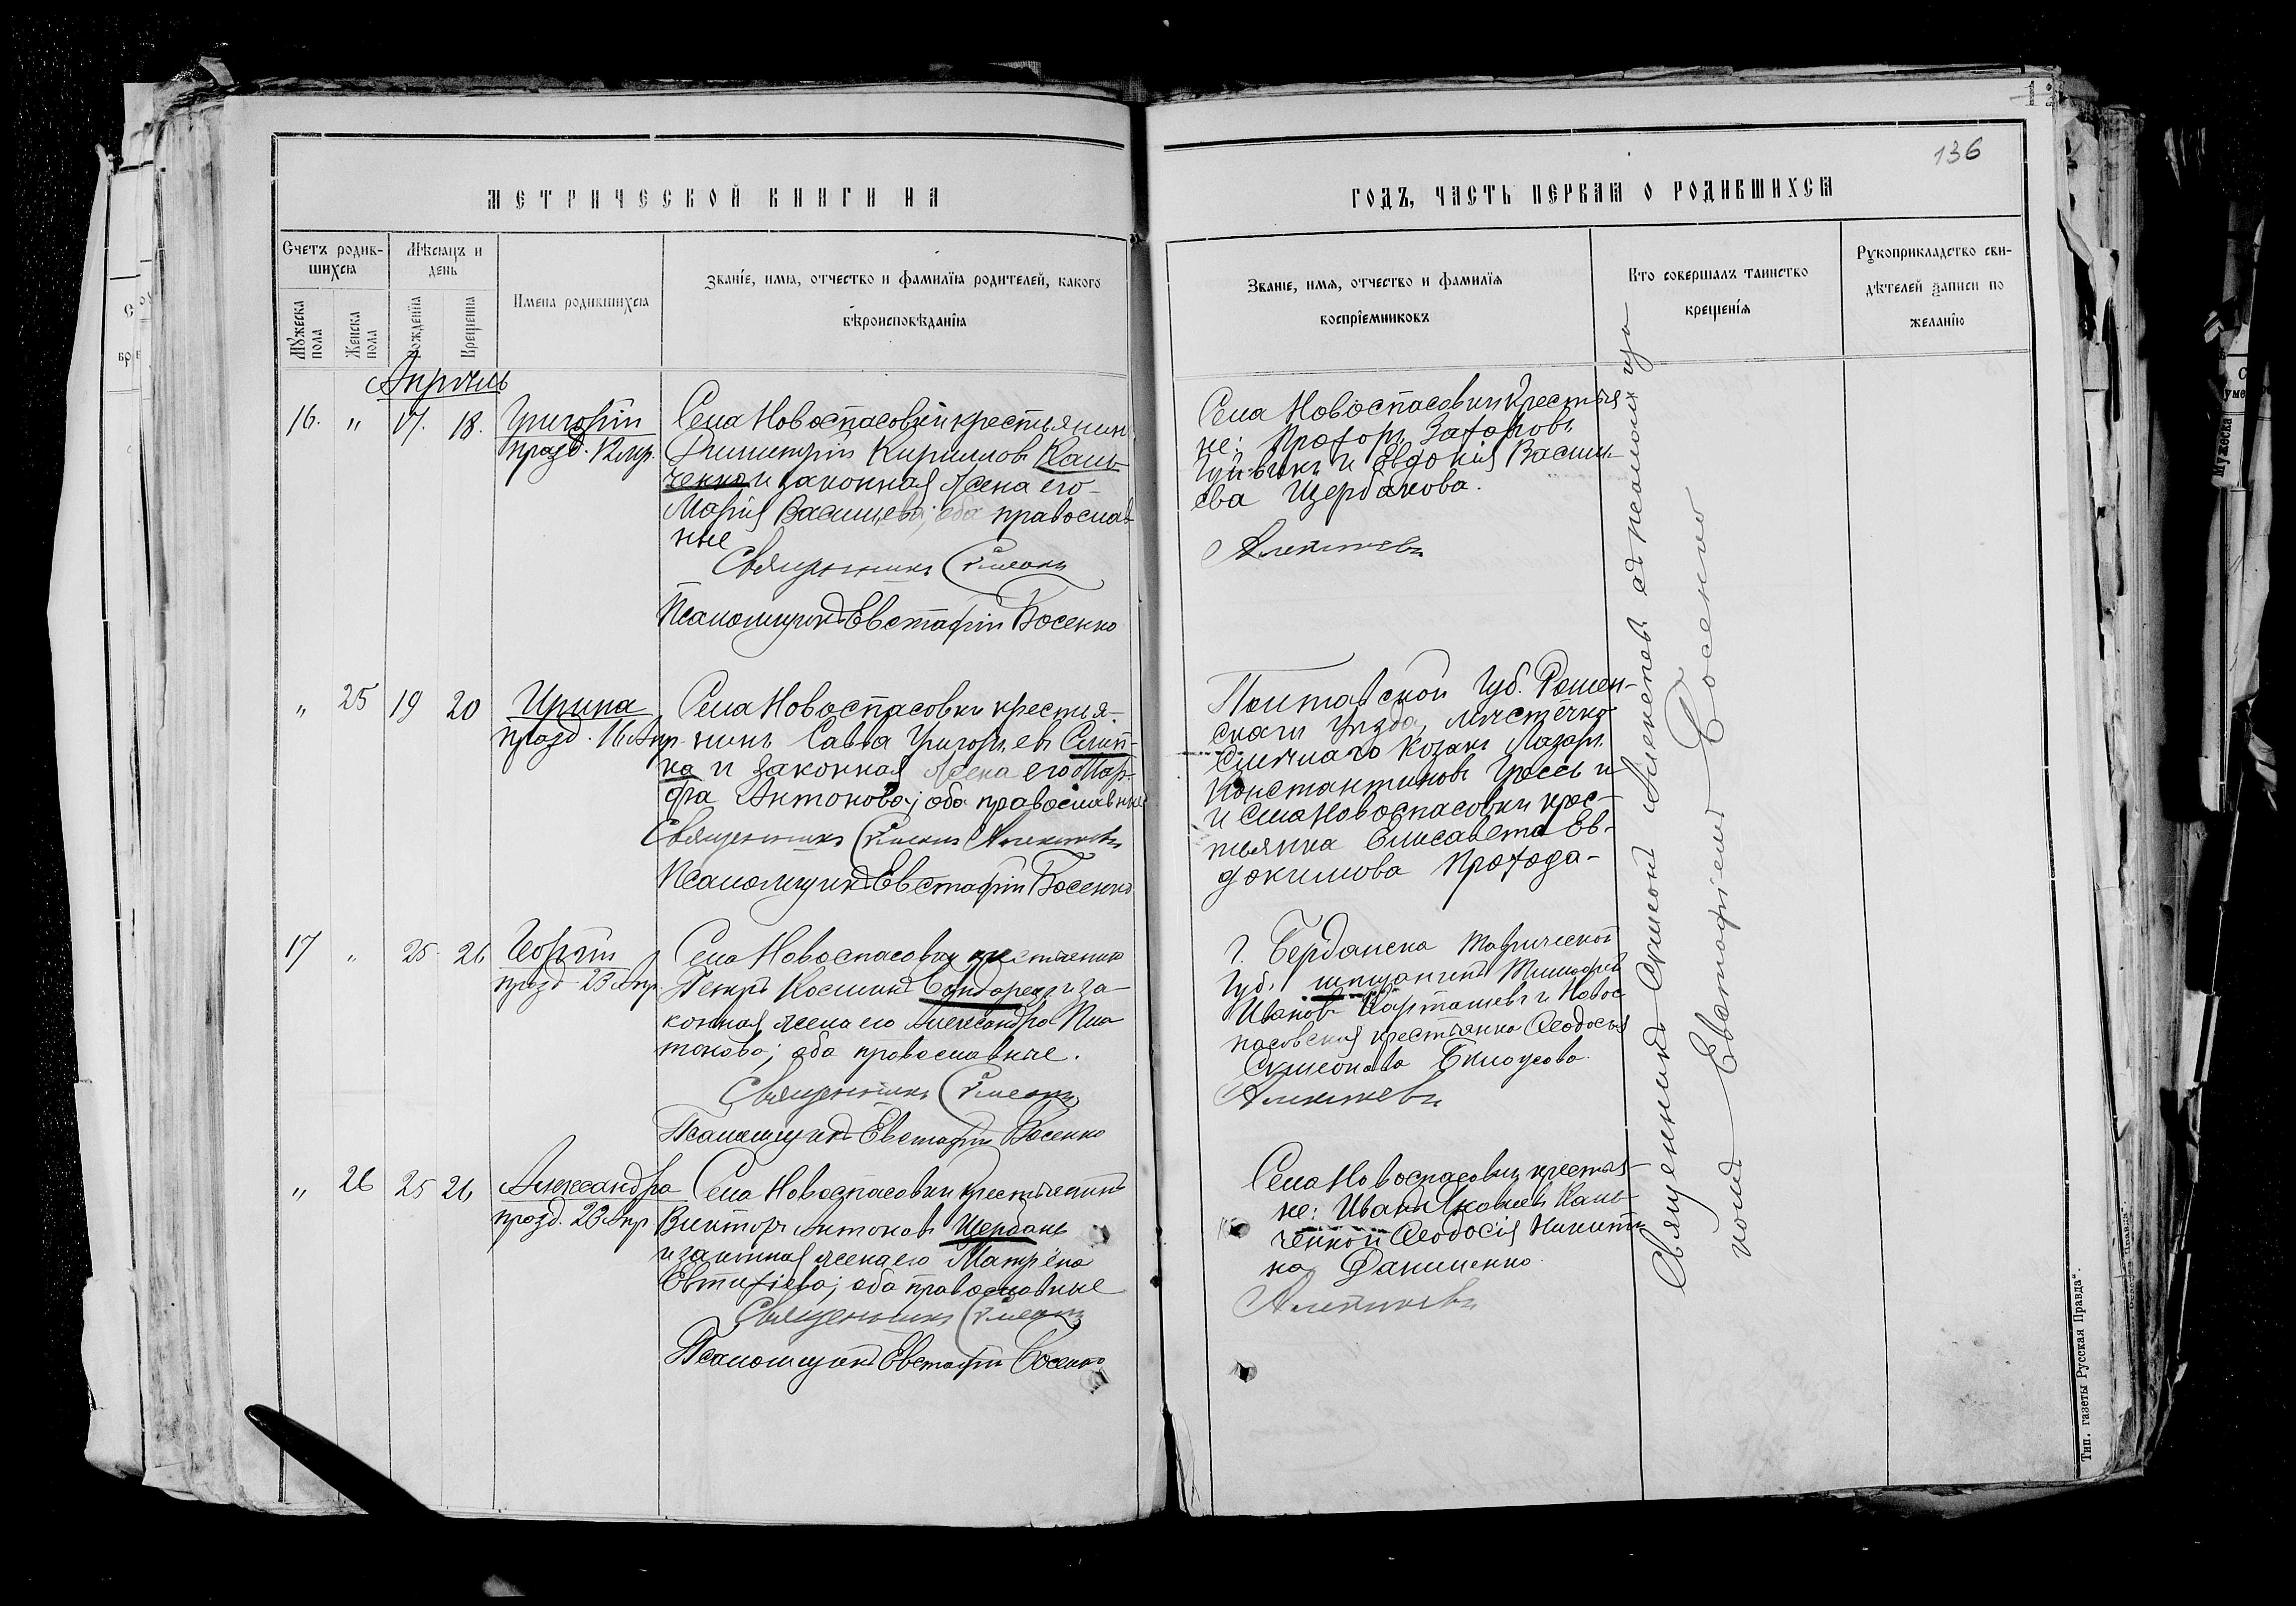 136
МЕТРИЧЕСКОЙ КНИГИ НА
ГОДЪ, ЧАСТЬ ПЕРВАЯ О РОДИВШИХСЯ
Счетъ родив-
шихся
Мѣсяцъ и
день
Мужеска
пола
Женска
пола
Рожденїя
Крещенїя
Имена родившихся
Званїе, имя, отчество и фамилїя родителей, какого
вѣроисповѣданїя
Званїе, имя, отчество и фамилїя
воспрїемниковъ
Кто совершалъ таинство
крещенїя
Рукоприкладство сви-
дѣтелей записи по
желанїю
Апрѣль
16. " 17. 18. Григорій
празд.
Села Новоспасовки крестьянин
Димитрій Кириллов Каль-
ченко и законная жена его
Марія Васильева; оба православ-
ные
Священникъ Симеонъ
Псаломщикъ Евстафій Косенко
Села Новоспасовки крестья
не: Прохоръ Захаровъ
и Евдокія Василь-
ева Щербакова.
Алексѣевъ
" 25 19 20 Ирина
празд. 16 Апр.
Села Новоспасовки крестья-
нинъ Савва Григорьевъ Слип-
ка и законная жена его Мар-
фа Антонова; оба православные
Священникъ Симеонъ Алексѣевъ
Псаломщикъ Евстафій Косенко
Полтавской Губ. Ромен-
скаго Уѣзда, мѣстечка
Смѣлаго козакъ Лазарь
Константиновъ и
и села Новоспасовки крес-
тьянка Елисавета Ев-
докимова Прохода-
17 " 25 26 Георгій
празд 23 Апр.
Села Новоспасовки крестьянинъ
Петръ Косминъ Бондарець и за-
конная жена его Александра Пла
тонова; оба православные.
Священникъ Симеонъ
Псаломщикъ Евстафій Косенко
г. Бердянска Таврической
Губ. мѣщанинъ Тимофей
Ивановъ Карташевъ и Новос
пасовская крестьянка Ѳеодосья
Симеонова Бѣлоусова.
Алексѣевъ
" 26 25 26 Александра
празд. 23 Апр
Села Новоспасовки крестьянинъ
Викторъ Антоновъ Щербакъ
и законная жена его Матрена
Евтихіева; оба православные
Священникъ Симеонъ
Псаломщикъ Евстафій Косенко
Села Новоспасовки крестья-
не: Иванъ Яковлевъ Каль-
ченко и Ѳеодосія Никити
на Даниленко.
Алексѣевъ
Священникъ Симеонъ Алексѣевъ съ псаломщи
комъ Евстафіемъ Косенко
Тип. газеты „Русская Правда“.